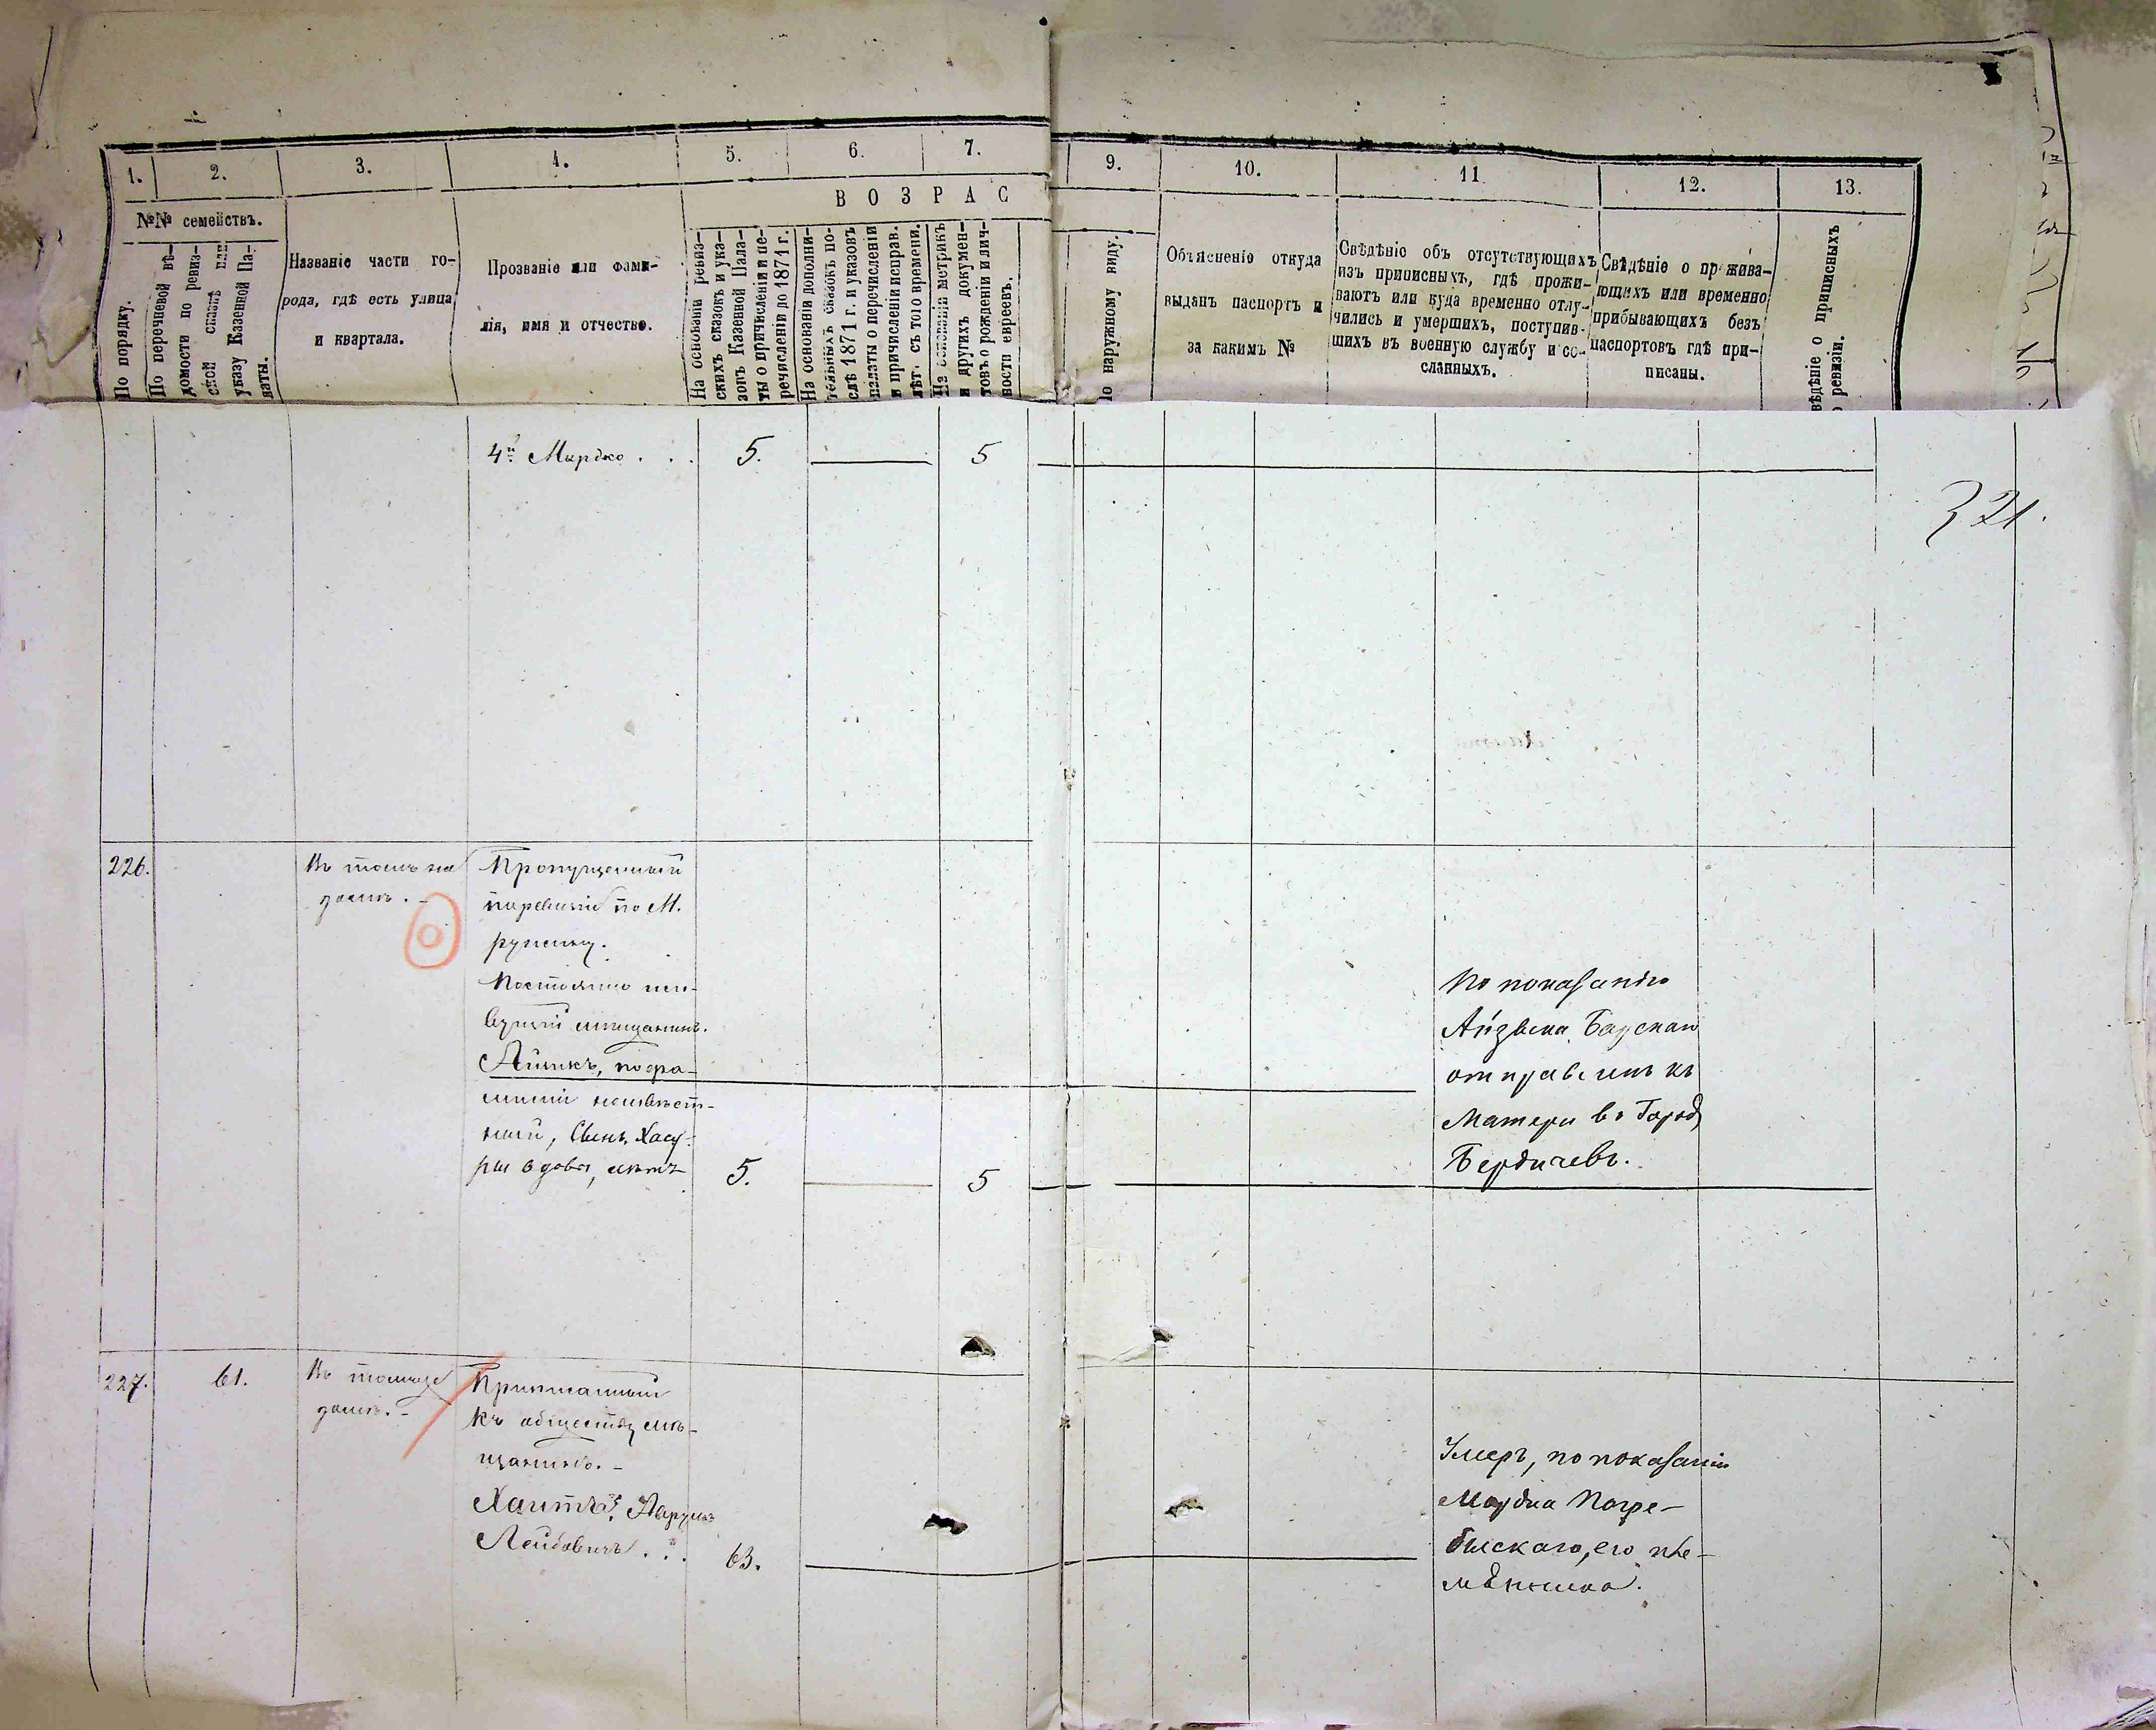 1. 2. 3. 4. 5. 6. 7. 9. 10. 11 12. 13.
В О З Р А С
№№ семействъ.
По порядку.
По перечневой вѣ-
домости по ревиз-
ской сказкѣ или
указу Казенной Па-
латы.
Названіе части го-
рода, гдѣ есть улица
и квартала.
Прозваніе или фами-
лія, имя и отчество.
На основаніи ревиз-
скихъ сказокъ и ука-
зовъ Казенной Пала-
ты о причисленіи и пе-
речисленіи до 1871 г.
На основаніи дополни-
тельныхъ сказокъ по-
слѣ 1871 г. и указовъ
палаты о перечисленіи
и причисленіи исправ.
лѣтъ съ того времени.
На основаніи метрикъ
и другихъ докумен-
товъ о рожденіи и лич-
ности евреевъ.
по наружному виду.
Объясненіе откуда
выданъ паспортъ и
за какимъ №
Свѣдѣніе объ отсутствующихъ
изъ приписныхъ, гдѣ прожи-
ваютъ или куда временно отлу-
чились и умершихъ, поступив-
шихъ въ военную службу и со-
сланныхъ.
Свѣдѣніе о прожива-
ющихъ или временно
прибывающихъ безъ
паспортовъ гдѣ при-
писаны.
вѣдѣніе о приписныхъ
ревизіи.
4й Мардко . . . 5. 5
321.
226.
Въ томъ же
домѣ. -
Пропущенный
по ревизіи по М.
Ружину.
Постоянно жи-
вущій мѣщанинъ.
Айзикъ, по фа-
миліи неизвѣст-
ный, сынъ
вдовы, лѣтъ 5. 5
По показанію
Айзыка
отправленъ къ
матери въ Городъ
Бердичевъ.
227. 61.
Въ томъ же
домѣ. -
Приписанный
къ обществу мѣ-
щанинъ. -
Хаитъ, Аарунъ
Лейбовичъ . . . 63.
Умеръ, по показанію
Мардка Погре-
быскаго, его пле-
мѣнника.